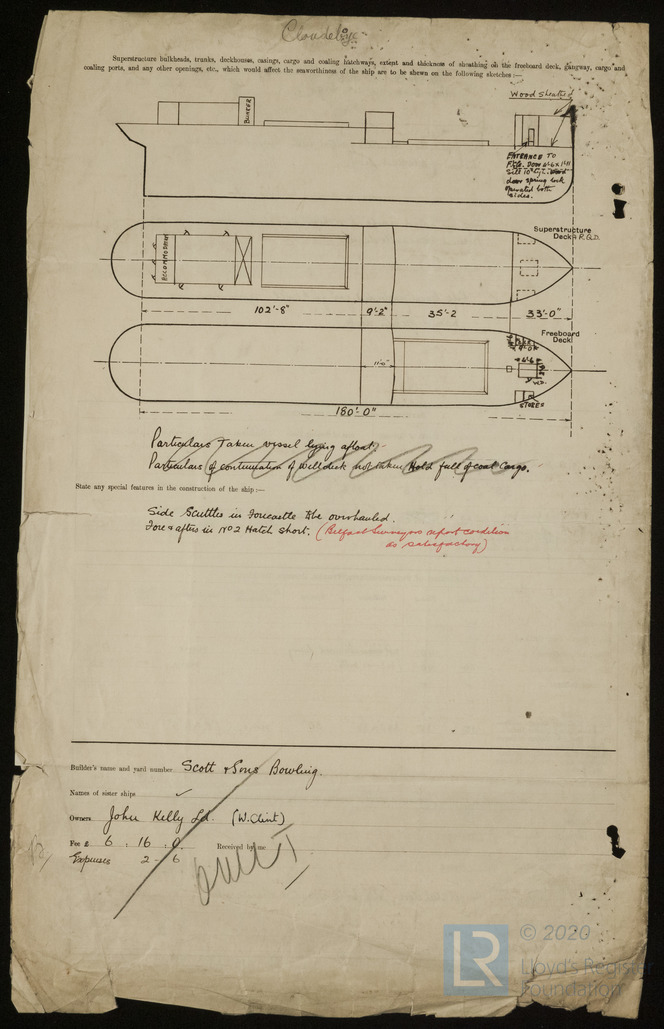 Cloudelyc
Superstructure bulkheads, trunks, deckhouses, casings, cargo and coaling hatchways, extent and thickness of sheathing on the freeboard deck, gangway, cargo and
coaling ports, and any other openings, etc., which would affect the seaworthiness of the ship are to be shewn on the following sketches :—
Wood Sheathed
BUNKER
ENTRANCE TO
door spring lock
operated both
sides.
Superstructure
Deck & R.Q.D.
ACCOMMODATION
102'-8"
9'-2"
35'-2
33'-0"
Freeboard
Deck
11'-0"
STORES
180'-0"
Particulars Taken vessel lying afloat.
Particulars of continuation of welldeck not taken Hold full of coal Cargo.
State any special features in the construction of the ship :—
Side Scuttles in Forecastle to be overhauled.
Fore & afters in No 2 Hatch short. (Belfast Surveyors report condition
as satisfactory)
Builder's name and yard number Scott & Sons Bowling.
Names of sister ships
Owners John Kelly Ld. (W. Clint)
Fee £ 6 : 16 : 0. Received by me
Expenses 2 - 6
© 2020
LR
Lloyd's Register
Foundation